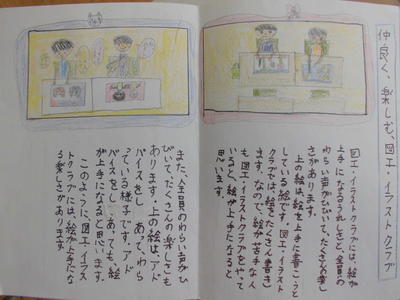 仲良く、楽しむ、図工・イラストクラブ
図工・イラストクラブは、絵が
上手になるうれしさと、全員の
わらい声がひびいて、たくさんの楽し
さがあります。
上の絵は、絵を上手に書こうと
している絵です。図工・イラスト
クラブでは、絵をたくさん書き
ます。なので、絵が苦手な人
も図工・イラストクラブをやって
いると、絵が上手になると
思います。
また、全員のわらい声がひ
びいて、たくさんの楽しさも
あります。上の絵は、アド
バイスをし あって、わら
っている様子です。アド
バイスをし あっても、絵
が上手になると思います。
このように、図工・イラス
トクラブには、絵が上手にな
る楽しさがあります。